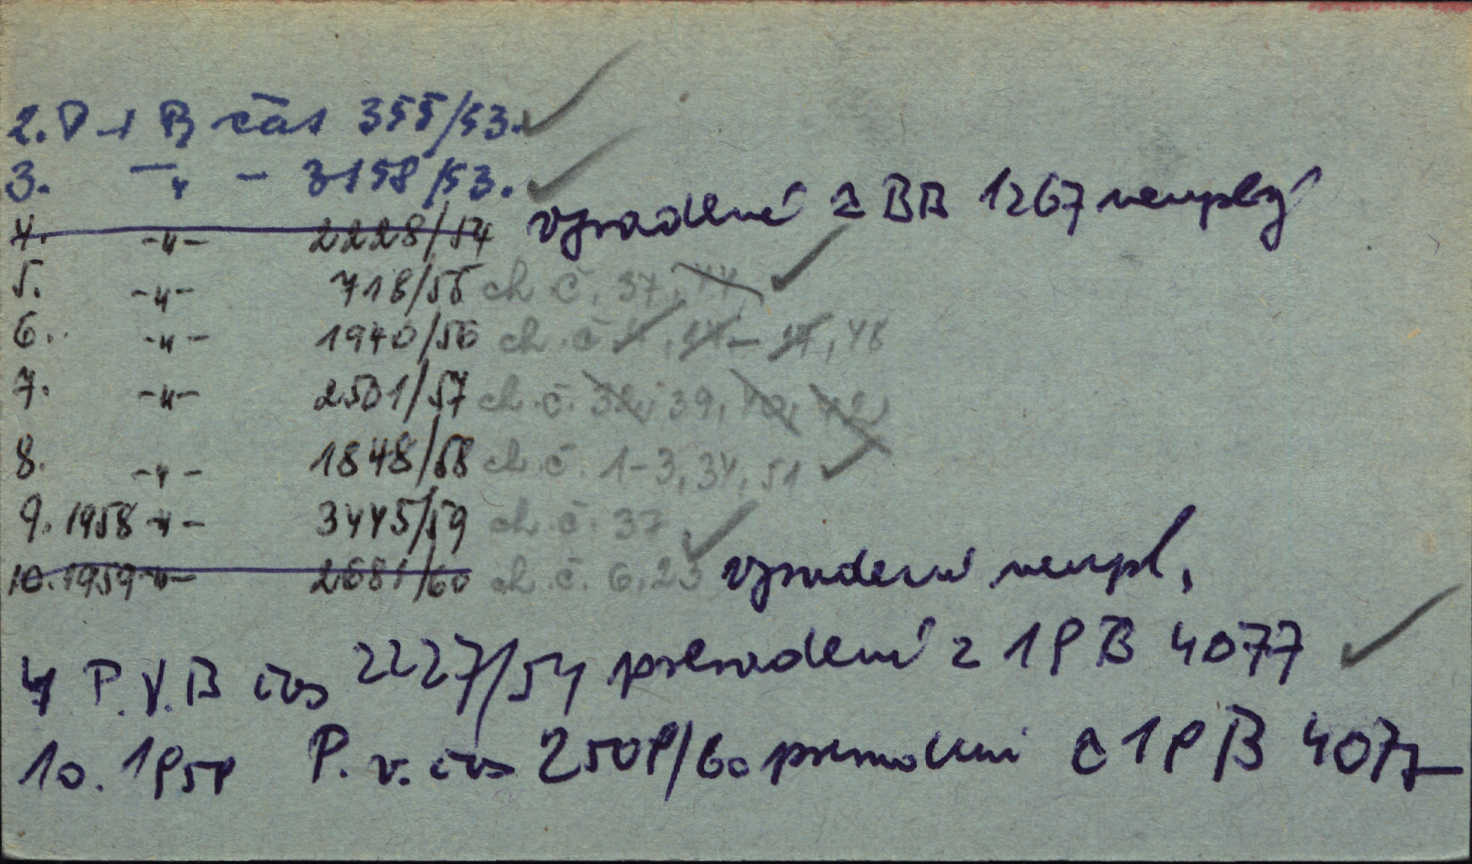 2. P v B čas 355/53.
3. -"- 3158/53.
4. -"- 2228/54 vyradené z BB 1267 neuplný
5. -"- 718/55 ch. č. 37, 44,
6. -"- 1940/56 ch. č. , 48
7. -"- 2501/57 ch. č. 32, 39, 40, 42
8. -"- 1848/58 ch. č. 1-3, 34, 51
9. 1958 -"- 3445/59 ch. č. 37
10. 1959 -"- 2681/60 ch. č. 6, 23 vyradené neupl.
4 P. V. B čas 2227/54 preradené z 1PB 4077
10. 1959 P. v. čas 2509/60 preradené z 1PB 4077